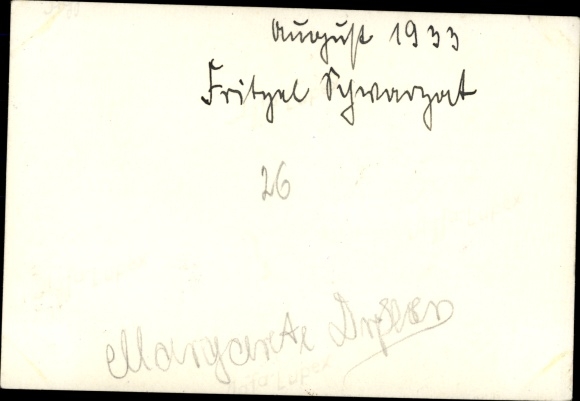 August 1933
Fritzel Schwarzat
26
Margarete